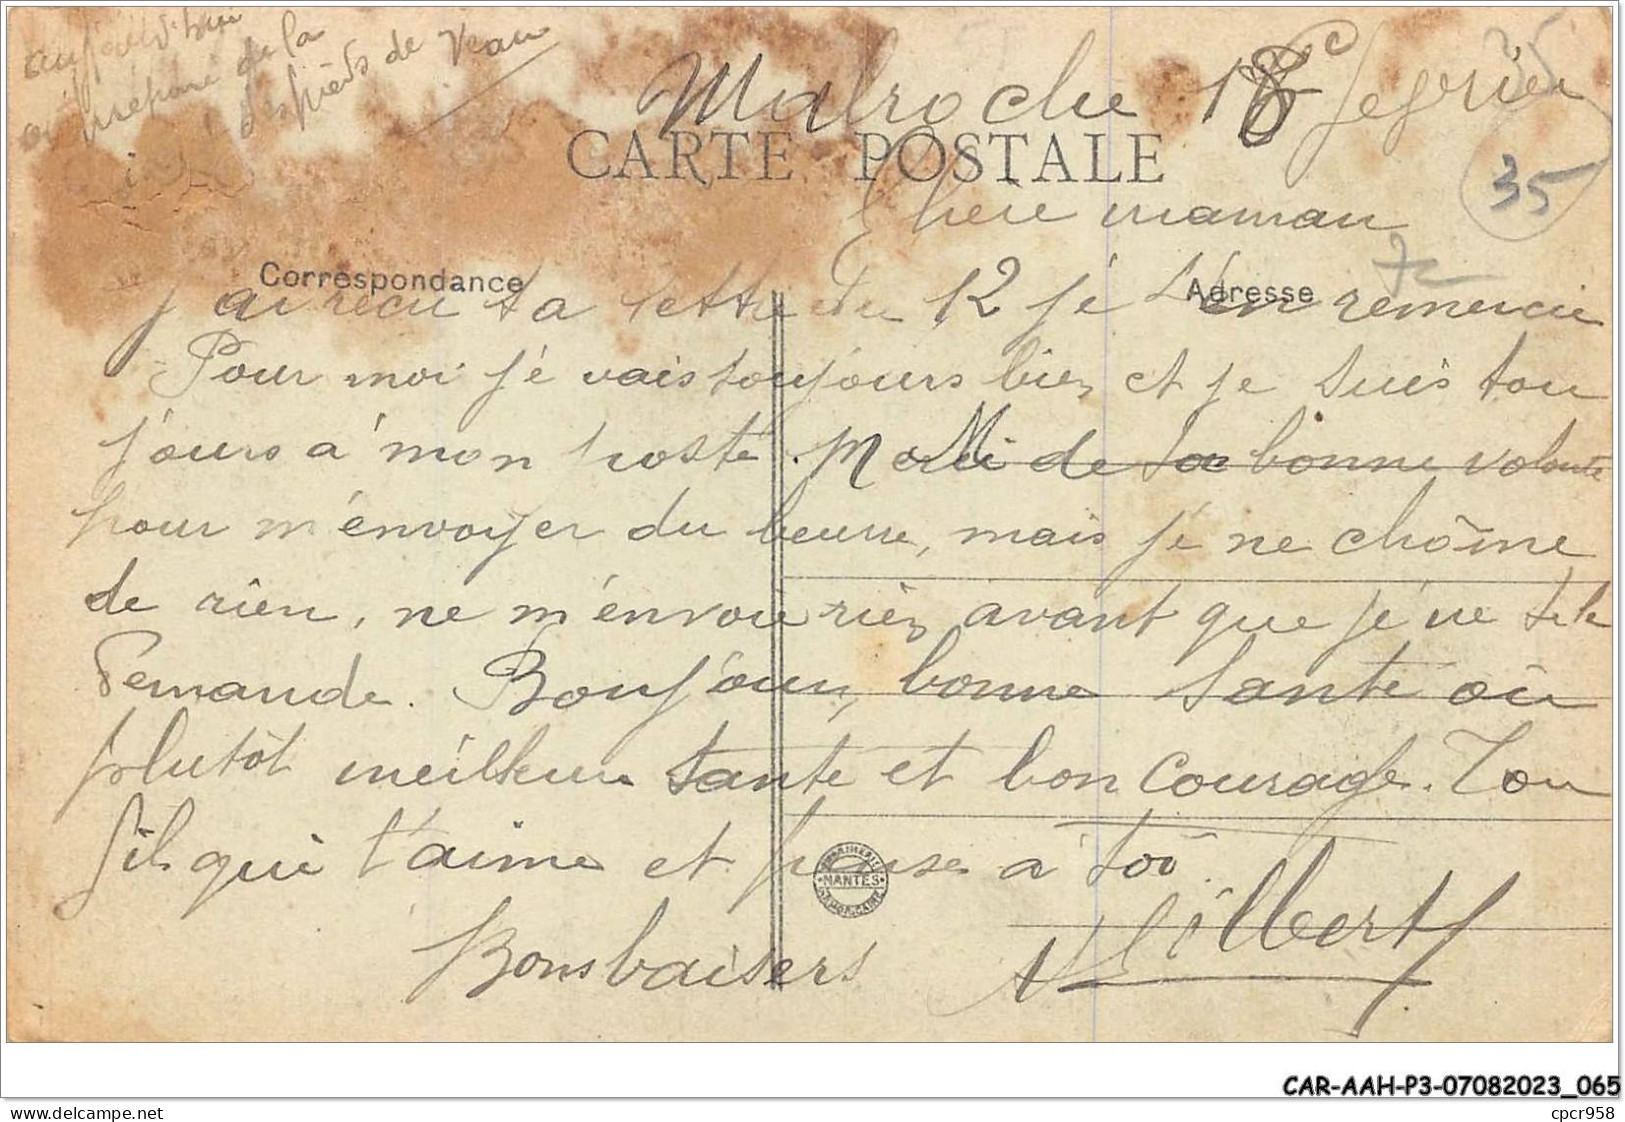 prépare de la
des pieds de veau
Malroche 18 fevrier
35
CARTE POSTALE
35
Chere maman
Correspondance
Adresse
j'ai recu ta lettre du 12 je t'en remercie
Pour moi je vais toujours bien et je suis tou
jours a mon poste. Merci de ta bonne volonte
pour m'envoyer du beurre, mais je ne chôme
de rien, ne m'envoie rien avant que je ne te le
demande. Bonjour, bonne sante où
plutôt meilleure sante et bon courage. Ton
fils qui t'aime et pense a toi.
NANTES
Bons baisers
Gilbert
CAR-AAH-P3-07082023_065
cpcr958